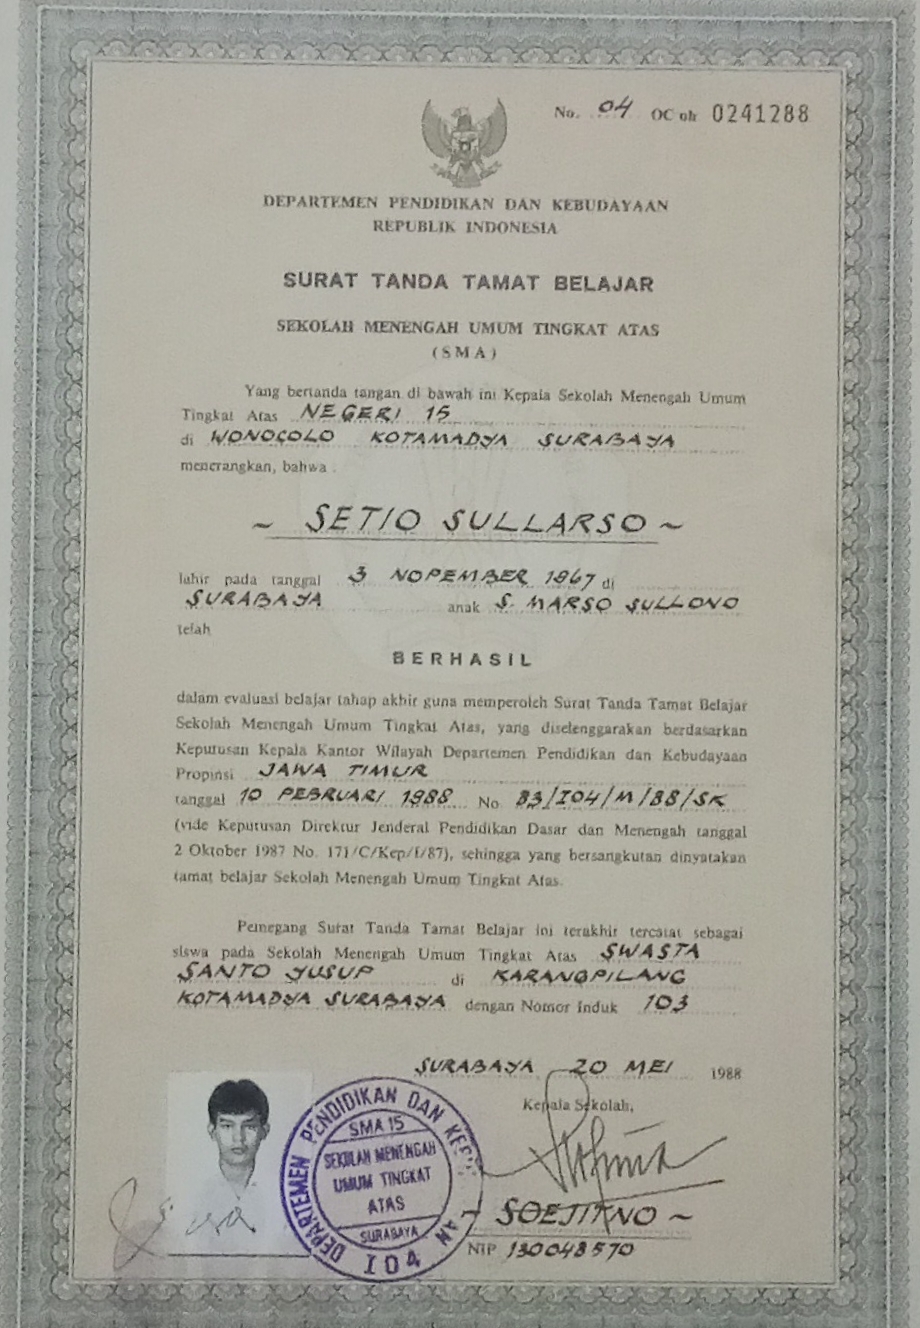 No. 04 OC oh 0241288
DEPARTEMEN PENDIDIKAN DAN KEBUDAYAAN
REPUBLIK INDONESIA
SURAT TANDA TAMAT BELAJAR
SEKOLAH MENENGAH UMUM TINGKAT ATAS
(SMA)
Yang bertanda tangan di bawah ini Kepala Sekolah Menengah Umum
Tingkat Atas NEGERI 15
di WONOCOLO KOTAMADYA SURABAYA
menerangkan, bahwa
~ SETIO SULLARSO ~
lahir pada tanggal 3 NOPEMBER 1967 di
SURABAYA anak S. MARSO SULLONO
telah
BERHASIL
dalam evaluasi belajar tahap akhir guna memperoleh Surat Tanda Tamat Belajar
Sekolah Menengah Umum Tingkat Atas, yang diselenggarakan berdasarkan
Keputusan Kepala Kantor Wilayah Departemen Pendidikan dan Kebudayaan
Propinsi JAWA TIMUR
tanggal 10 PEBRUARI 1988 No 83/I04/M/88/SK
(vide Keputusan Direktur Jenderal Pendidikan Dasar dan Menengah tanggal
2 Oktober 1987 No. 171/C/Kep/I/87), sehingga yang bersangkutan dinyatakan
tamat belajar Sekolah Menengah Umum Tingkat Atas.
Pemegang Surat Tanda Tamat Belajar ini terakhir tercatat sebagai
siswa pada Sekolah Menengah Umum Tingkat Atas SWASTA
SANTO YUSUP di KARANGPILANG
KOTAMADYA SURABAYA dengan Nomor Induk 103
SURABAYA 20 MEI 1988
Kepala Sekolah,
SOEJITNO ~
NIP 130048570
DEPARTEMEN PENDIDIKAN DAN
SMA 15
SEKOLAH MENENGAH
UMUM TINGKAT
ATAS
SURABAYA
I04